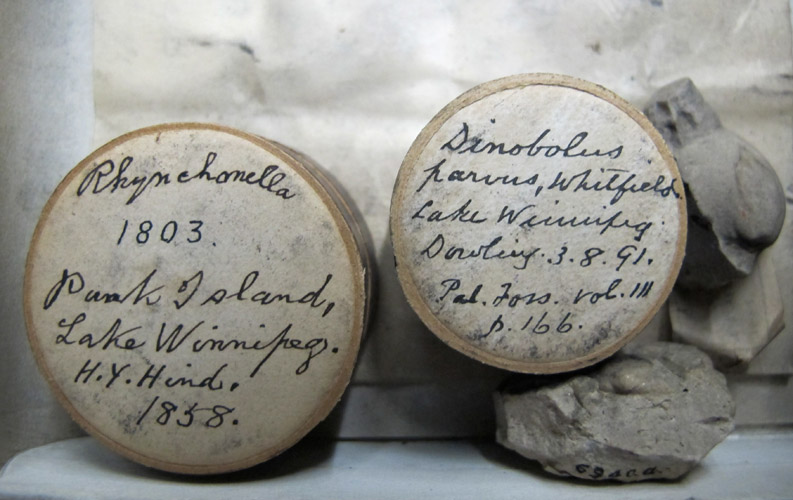 Rhynchonella
1803.
Punk Island,
Lake Winnipeg.
H.Y. Hind,
1858.
Dinobolus
parvus, Whitfield.
Lake Winnipeg.
Dowling. 3. 8. 91.
Pal. Foss. vol. III
p. 166.